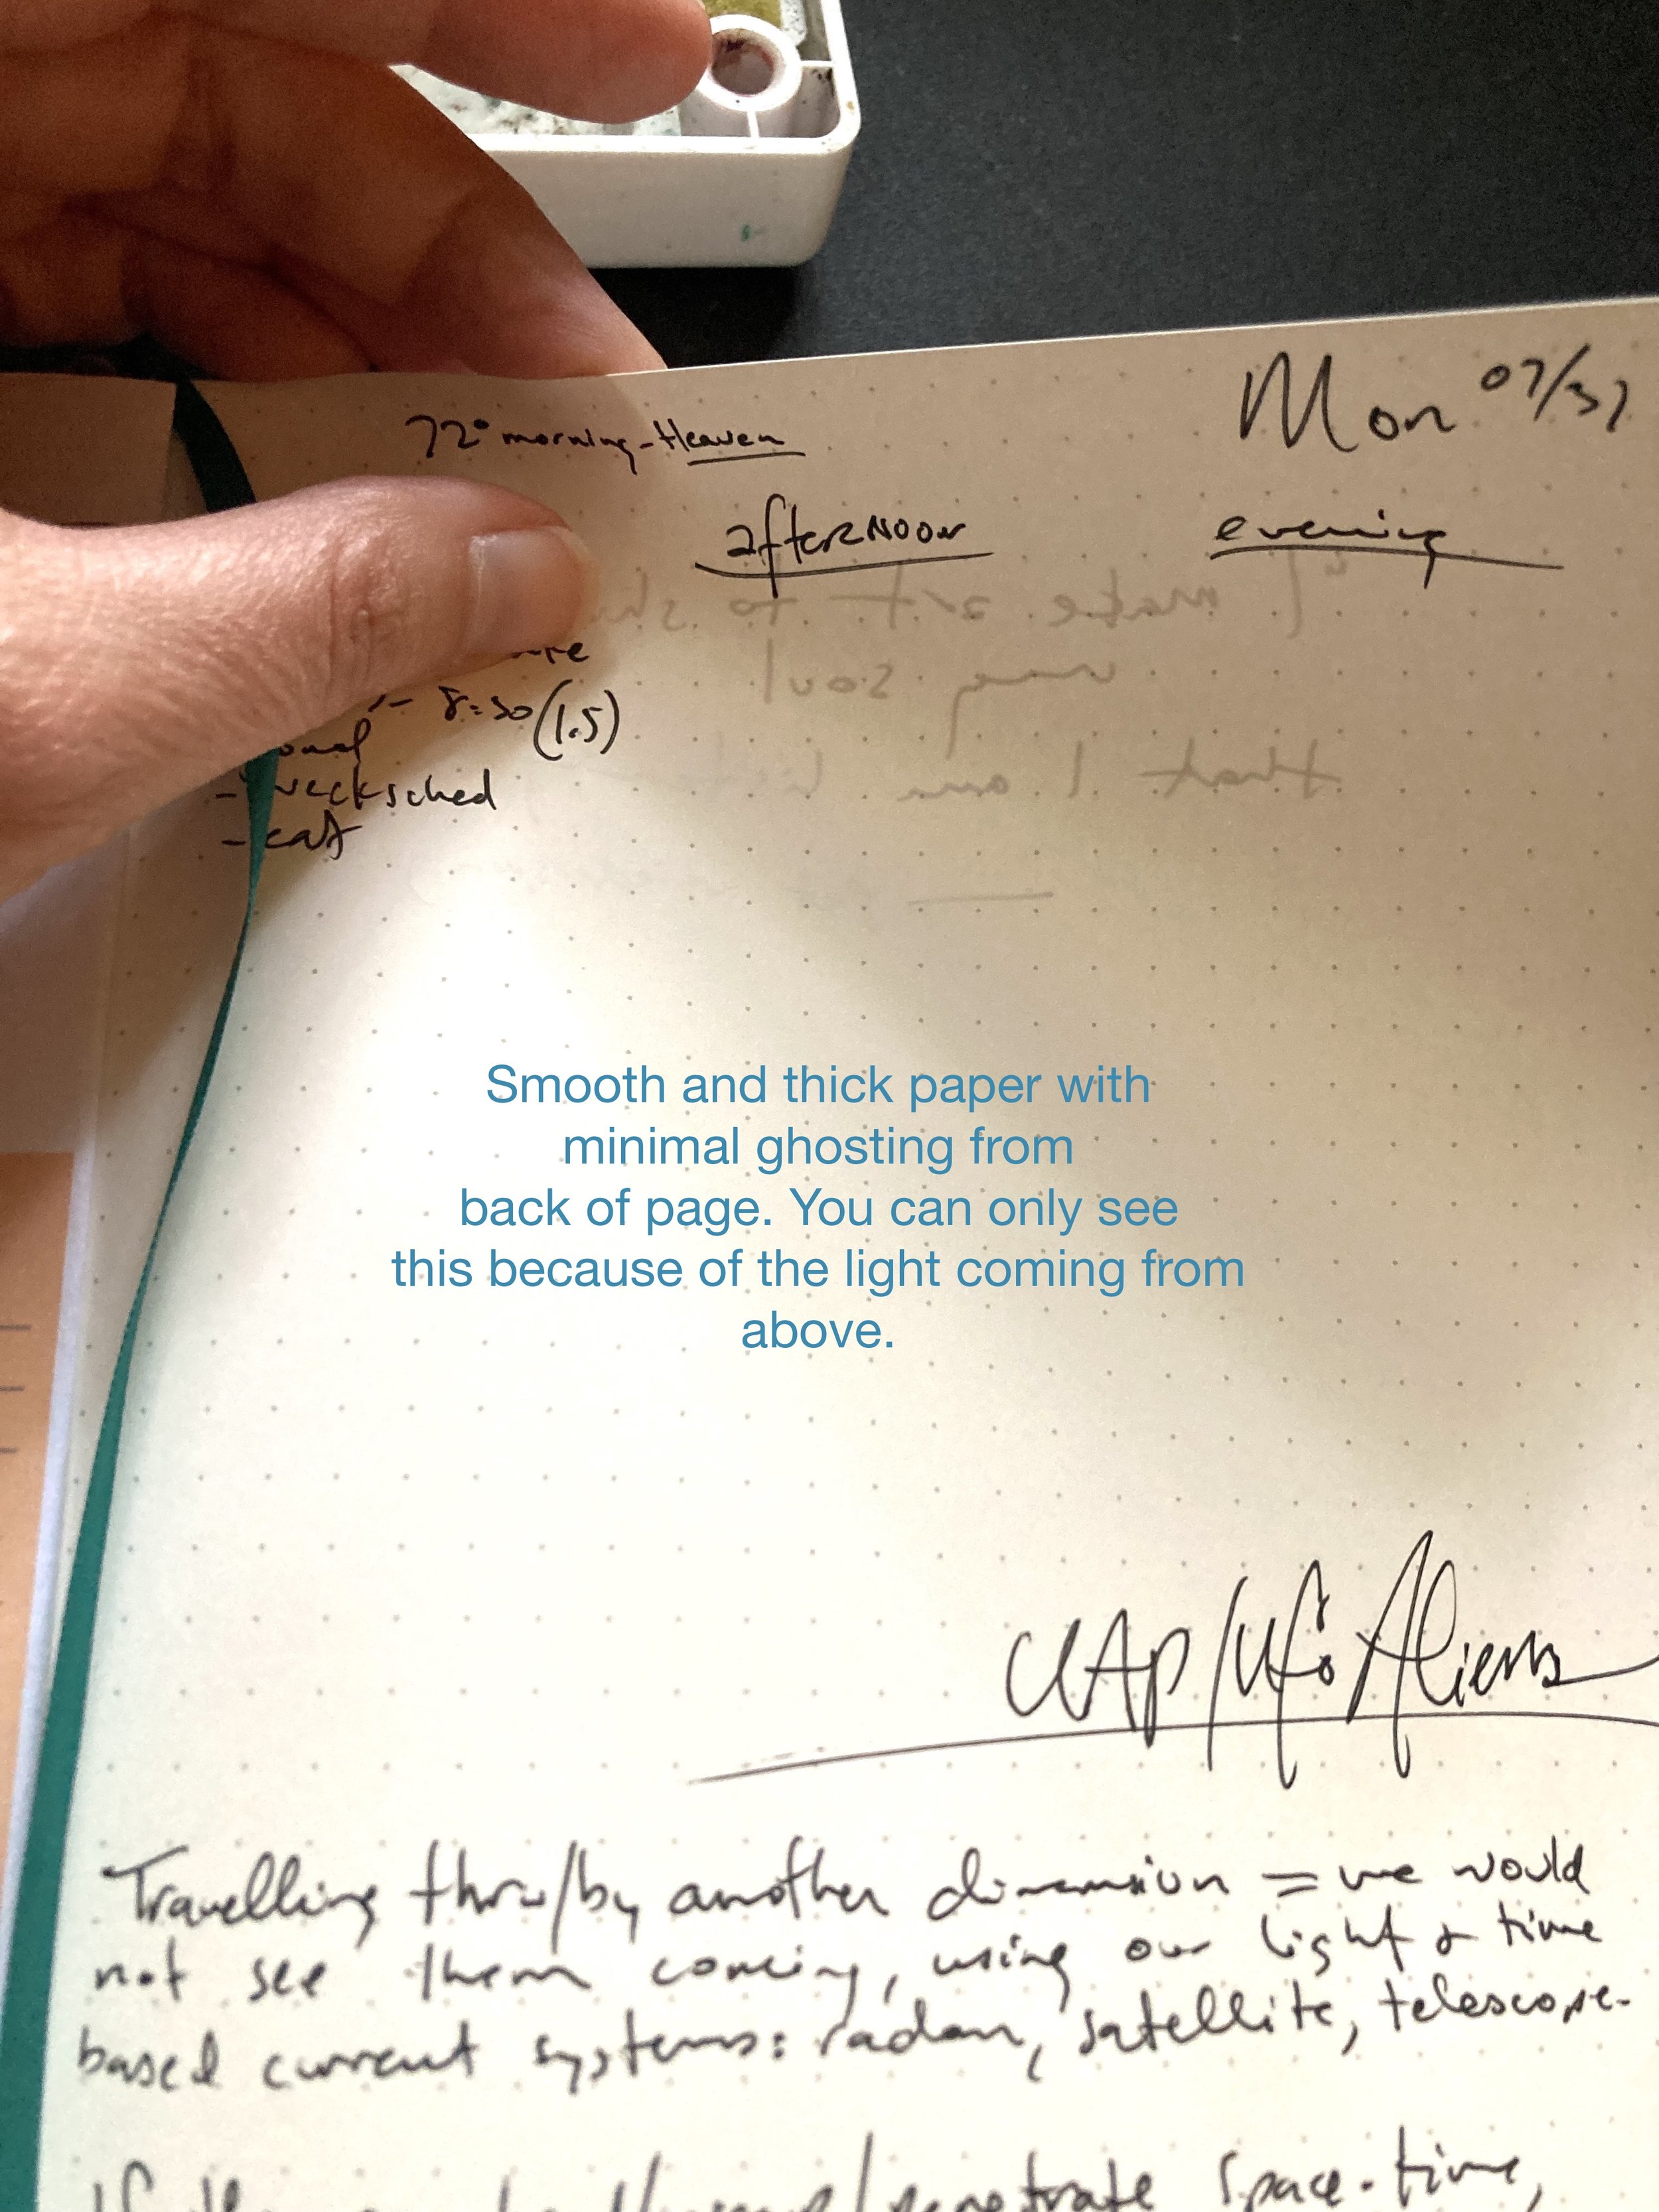 Mon 07/31
72° morning - Heaven
afternoon
evening
"I make art to
my soul
that I am
8:50 (1.5)
- weeksched
- eat
Smooth and thick paper with
minimal ghosting from
back of page. You can only see
this because of the light coming from
above.
UAP/Ufo Aliens
Travelling thru/by another dimension = we would
not see them coming, using our light & time
based current systems: radar, satellite, telescope.
space-time,